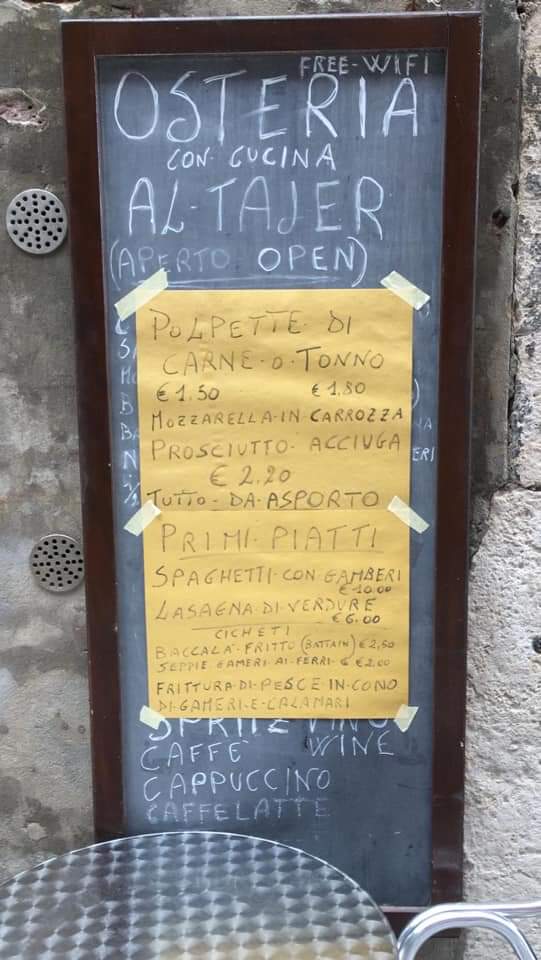 FREE-WIFI
OSTERIA
CON CUCINA
AL-TAJER
(APERTO OPEN)
POLPETTE DI
CARNE O TONNO
€1.50 €1.80
MOZZARELLA-IN-CARROZZA
PROSCIUTTO-ACCIUGA
€ 2.20
TUTTO-DA-ASPORTO
PRIMI-PIATTI
SPAGHETTI-CON-GAMBERI
€10.00
LASAGNA-DI-VERDURE
€6.00
CICHETI
BACCALA'-FRITTO (BATTAIN) €2,50
SEPPIE GAMERI-AI-FERRI-€ €2.00
FRITTURA-DI-PESCE IN-CONO
DI-GAMERI-E-CALAMARI
SPRITZ VINO
CAFFE' WINE
CAPPUCCINO
CAFFELATTE